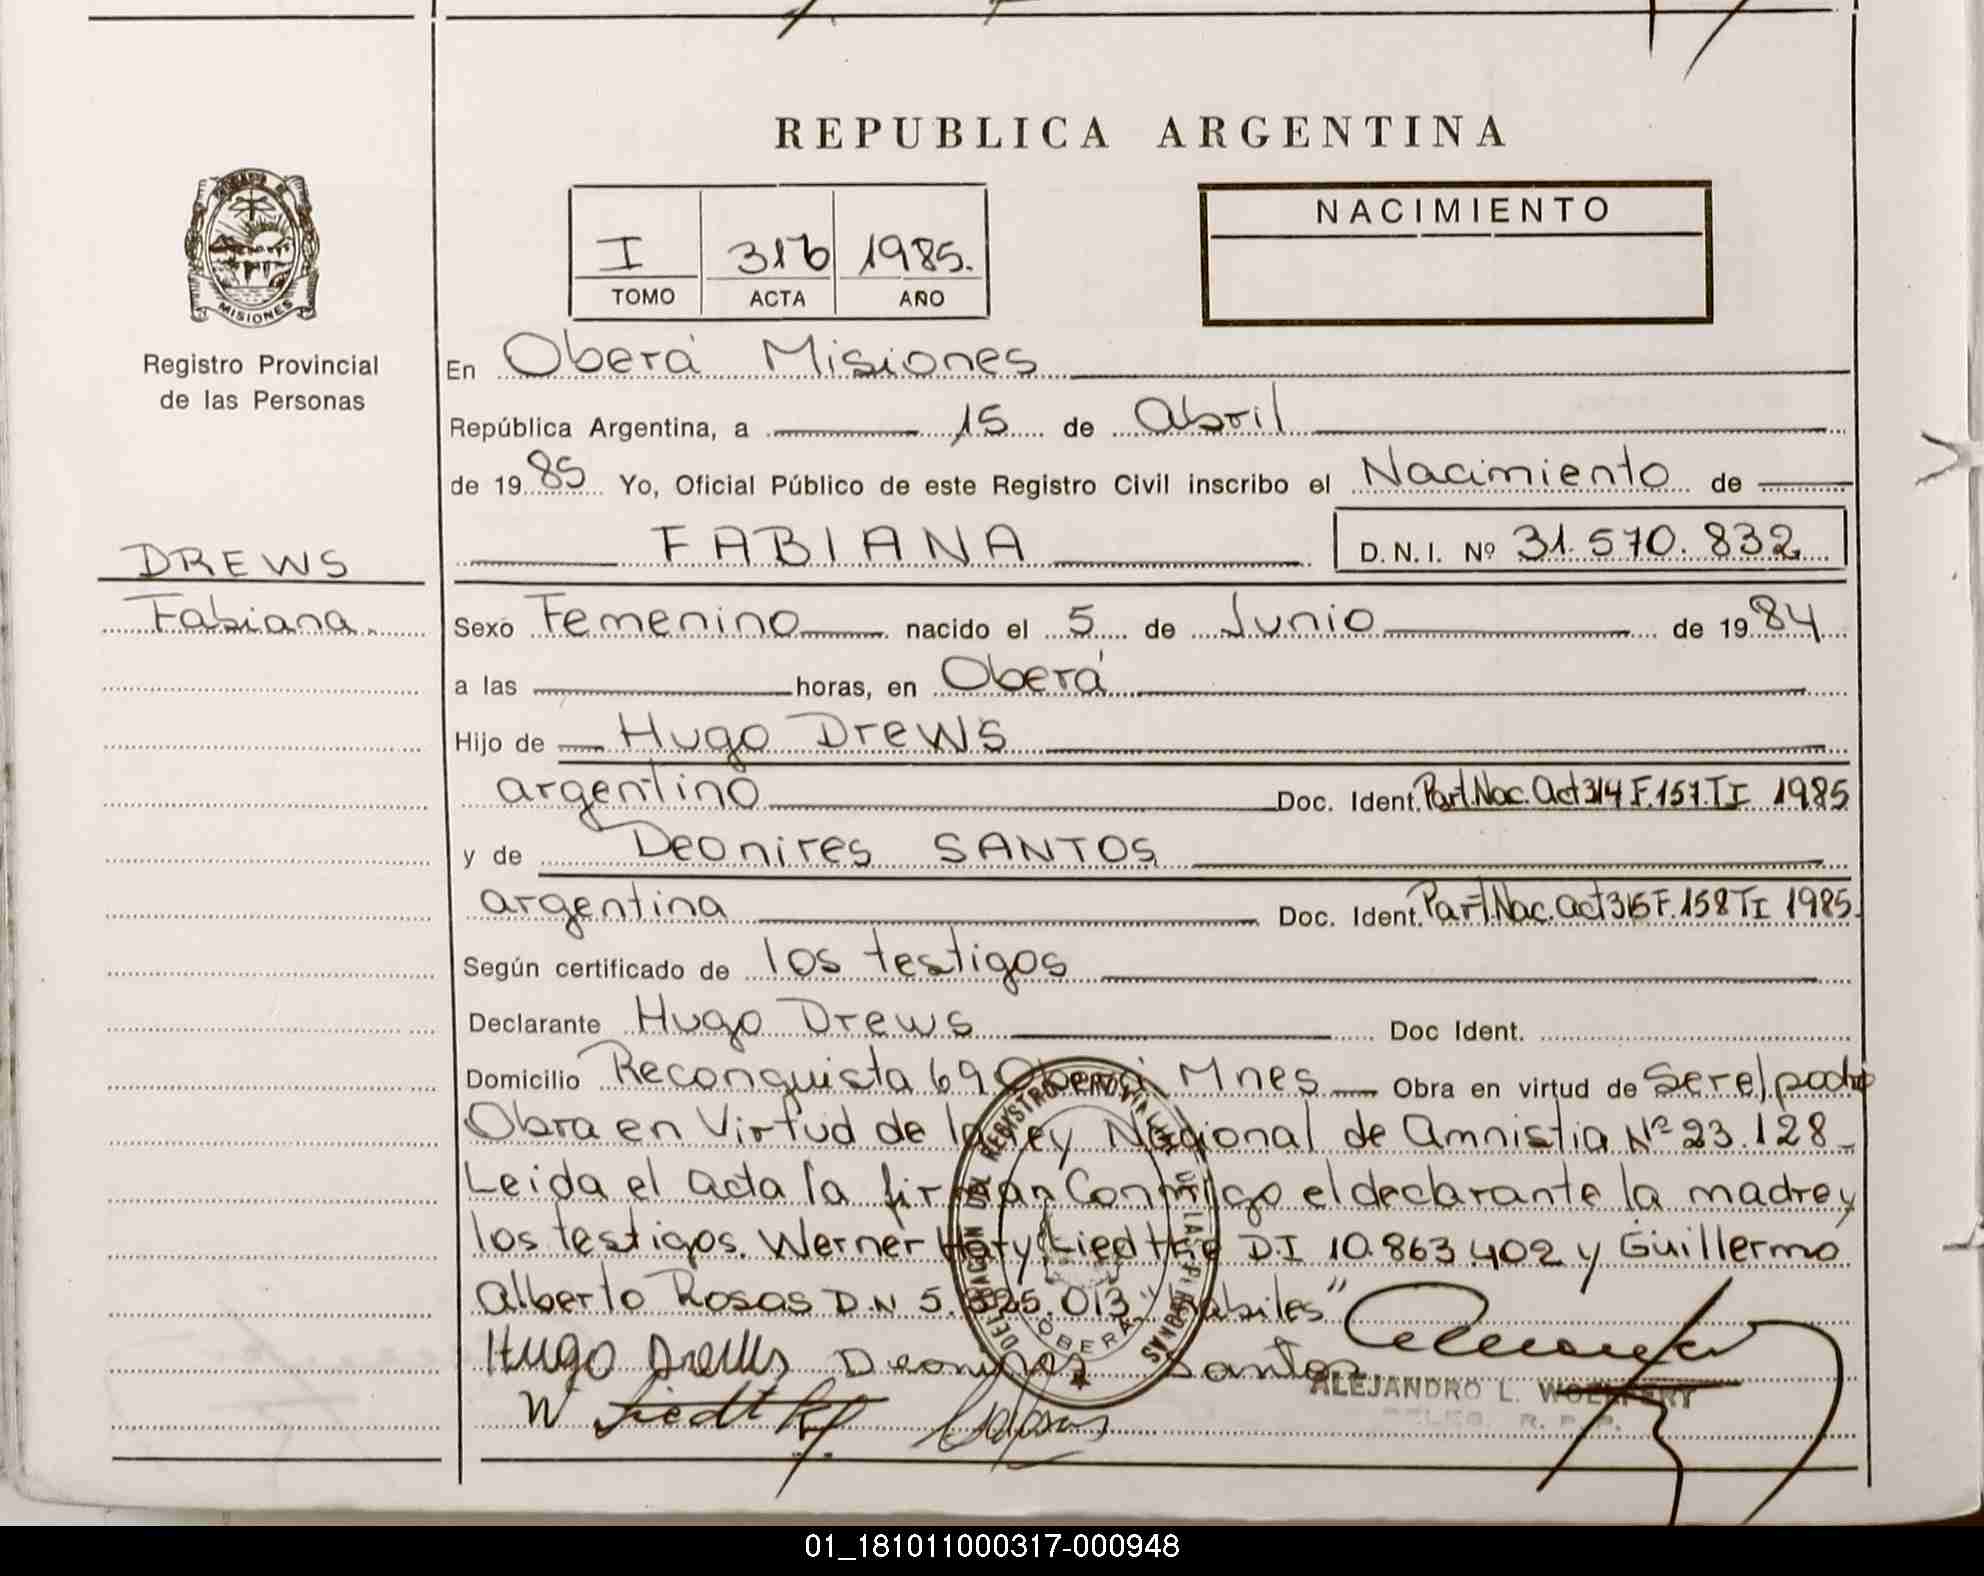 REPUBLICA ARGENTINA
MISIONES
Registro Provincial
de las Personas
I 316 1985.
TOMO ACTA AÑO
NACIMIENTO
En Oberá Misiones
República Argentina, a 15 de Abril
de 1985 Yo, Oficial Público de este Registro Civil inscribo el Nacimiento de
FABIANA D.N.I. Nº 31.570.832
DREWS
Fabiana
Sexo Femenino nacido el 5 de Junio de 1984
a las horas, en Oberá
Hijo de Hugo Drews
argentino Doc. Ident. Part.Nac.Act 314 F.157.TI 1985
y de Deonires SANTOS
argentina Doc. Ident. Part.Nac.Act 315 F.158 TI 1985.
Según certificado de los testigos
Declarante Hugo Drews Doc Ident.
Domicilio Reconquista 69 Oberá Mnes Obra en virtud de Ser el padre
Obra en Virtud de la Ley Nacional de Amnistia Nº 23.128
Leida el acta la firman Conmigo el declarante la madre y
los testigos. Werner Liedtke D.I 10.863.402 y Guillermo
Alberto Rosas D.N 5.013 "habiles"
Hugo Drews Deonires Santos
W Liedtke
ALEJANDRO L.
DELEG. R. P. P.
DELEGACION DEL REGISTRO PROVINCIAL DE LAS PERSONAS
OBERA
01_181011000317-000948